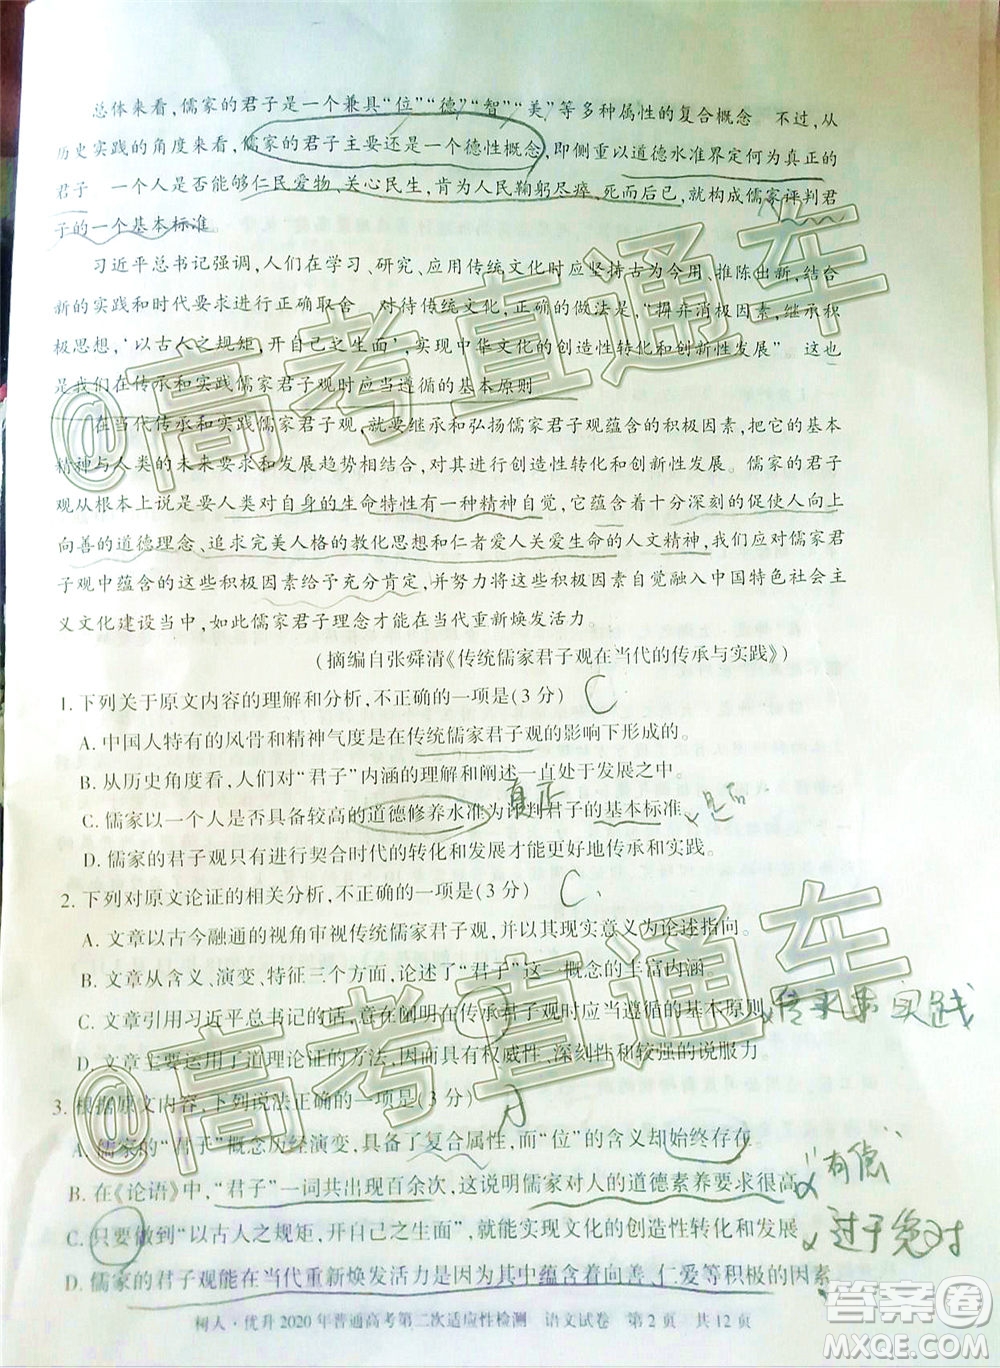 总体来看,儒家的君子是一个兼具“位”“德”“智”“美”等多种属性的复合概念 不过,从
历史实践的角度来看,儒家的君子主要还是一个德性概念,即侧重以道德水准界定何为真正的
君子 一个人是否能够仁民爱物,关心民生,肯为人民鞠躬尽瘁,死而后已,就构成儒家评判君
子的一个基本标准。
习近平总书记强调,人们在学习、研究、应用传统文化时应坚持古为今用、推陈出新,结合
新的实践和时代要求进行正确取舍 对待传统文化,正确的做法是,“摒弃消极因素,继承积
极思想,‘以古人之规矩,开自己之生面’,实现中华文化的创造性转化和创新性发展”。这也
是我们在传承和实践儒家君子观时应当遵循的基本原则
在当代传承和实践儒家君子观,就要继承和弘扬儒家君子观蕴含的积极因素,把它的基本
精神与人类的未来要求和发展趋势相结合,对其进行创造性转化和创新性发展。儒家的君子
观从根本上说是要人类对自身的生命特性有一种精神自觉,它蕴含着十分深刻的促使人向上
向善的道德理念、追求完美人格的教化思想和仁者爱人关爱生命的人文精神,我们要对儒家君
子观中蕴含的这些积极因素给予充分肯定,并努力将这些积极因素自觉融入中国特色社会主
义文化建设当中,如此儒家君子理念才能在当代重新焕发活力。
(摘编自张舜清《传统儒家君子观在当代的传承与实践》)
1. 下列关于原文内容的理解和分析,不正确的一项是(3 分) C
A. 中国人特有的风骨和精神气度是在传统儒家君子观的影响下形成的。
B. 从历史角度看,人们对“君子”内涵的理解和阐述一直处于发展之中。
真正
C. 儒家以一个人是否具备较高的道德修养水准为评判君子的基本标准
D. 儒家的君子观只有进行契合时代的转化和发展才能更好地传承和实践。
2. 下列对原文论证的相关分析,不正确的一项是(3 分) C
A. 文章以古今融通的视角审视传统儒家君子观,并以其现实意义为论述指向。
B. 文章从含义、演变、特征三个方面,论述了“君子”这一概念的丰富内涵。
C. 文章引用习近平总书记的话,意在阐明在传统君子观时应当遵循的基本原则
D. 文章主要运用了道理论证的方法,因而具有权威性、深刻性和较强的说服力。
3. 根据原文内容,下列说法正确的一项是(3 分) A
A. 儒家的“君子”概念历经演变,具备了复合属性,而“位”的含义却始终存在。
B. 在《论语》中,“君子”一词共出现百余次,这说明儒家对人的道德素养要求很高 “有德”
C. 只要做到“以古人之规矩,开自己之生面”,就能实现文化的创造性转化和发展 过于绝对
D. 儒家的君子观能在当代重新焕发活力是因为其中蕴含着向善、仁爱等积极的因素
树人·优升 2020 年普通高考第二次适应性检测 语文试卷 第 2 页 共 12 页
@高考直通车
@高考直通车
答案圈
MXQE.COM